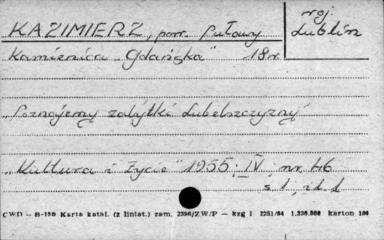 KAZIMIERZ, pow. Puławy
woj. Lublin
Kamienica „Gdańska" 18 w.
„Poznajemy zabytki Lubelszczyzny"
„Kultura i Życie" 1955, IV nr. 46
s. 1, il. 1
CWD — B-15b Karta katal. (z liniat.) zam. 2396/Z/W/P — kzg 1 2251/64 1,336.000 karton 180